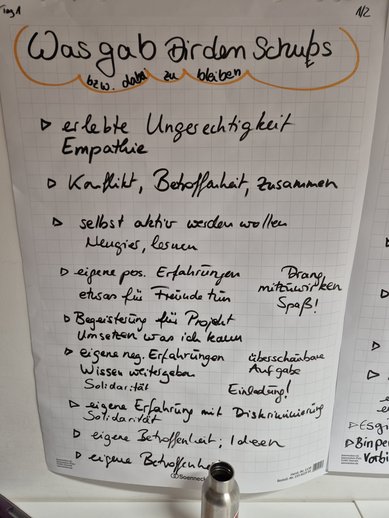 Tag 1
1/2
Was gab Dir den Schubs
bzw. dabei zu bleiben
▷ erlebte Ungerechtigkeit
Empathie
▷ Konflikt, Betroffenheit, Zusammen
▷ selbst aktiv werden wollen
Neugier, lernen
▷ eigene pos. Erfahrungen
etwas für Freunde tun
Drang
mitzuwirken
Spaß!
▷ Begeisterung für Projekt
Umsetzen was ich kann
▷ eigene neg. Erfahrungen
Wissen weitergeben
Solidarität
überschaubare
Aufgabe
Einladung!
▷ eigene Erfahrung mit Diskriminierung
Solidarität
▷ eigene Betroffenheit; Ideen
▷ eigene Betroffenhe
Soennec
▷ Bin per
Vorbi